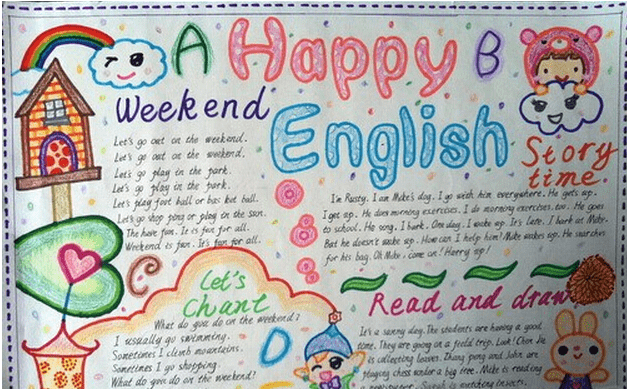 A Happy B
Weekend
English
Let's go out on the weekend.
Let's go out on the weekend.
Let's go play in the park.
Let's go play in the park.
Let's play foot ball or bas ket ball.
Let's go shop ping or play in the sun.
The have fun. It is fun for all.
Weekend is fun. It's fun for all.
Story
time.
I'm Rusty. I am Mike's dog. I go with him everywhere. He gets up.
I get up. He does morning exercises. I do morning exercises, too. He goes
to school. He song. I bark. One day, I wake up. It's late. I bark at Mike.
But he doesn't wake up. How can I help him? Mike wakes up. He searches
for his bag. Oh Mike, come on! Harry up!
C
Let's
Chant
What do you do on the weekend?
I usually go swimming.
Sometimes I climb mountains.
Sometimes I go shopping.
What do you do on the weekend?
D
Read and draw
It's a sunny day. The students are having a good
time. They are going on a field trip. Look! Chen Jie
is collecting leaves. Zhang peng and John are
playing chess under a big tree. Mike is reading
a newspaper. Sarah is watching insects